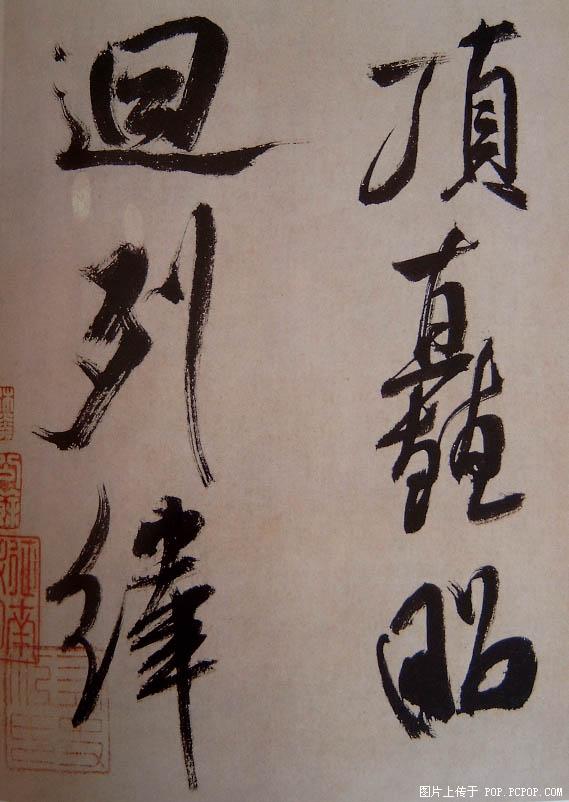 頂矗昭
迴列緯
图片上传于 POP.PCPOP.COM